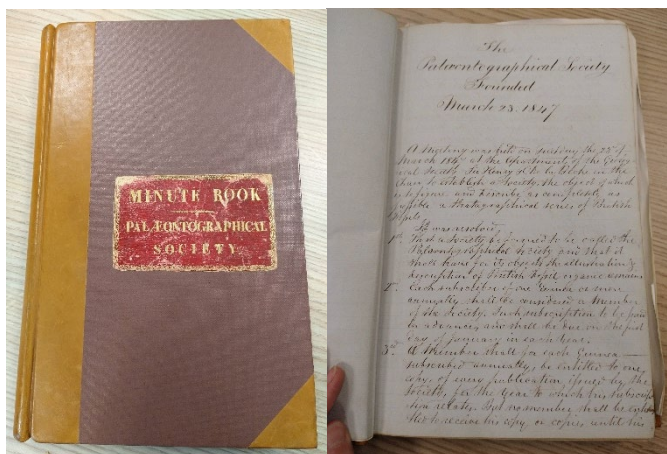 MINUTE BOOK
PALÆONTOGRAPHICAL
SOCIETY
The
Palæontographical Society
Founded
March 23. 1847
A Meeting was held on the 23rd of
March 1847 at the Apartments of the Geolog-
ical Society Sir Henry de la Beche in the
Chair to establish a Society, the object of which
is to figure and describe as completely as
possible a Stratigraphical series of British
Fossils
It was resolved,
1st That a Society be formed to be called the
Palæontographical Society and that it
shall have for its object the illustration &
description of British Fossil organic remains
2d Each subscriber of one Guinea or more
annually shall be considered a Member
of the Society. Such subscription to be paid
in advance, and shall be due on the first
day of January in each Year.
3rd A Member shall for each Guinea
subscribed annually, be entitled to one
copy of every publication issued by the
Society, for the Year to which his subscrip-
tion relates, but no member shall be
to receive his copy, or copies, until his